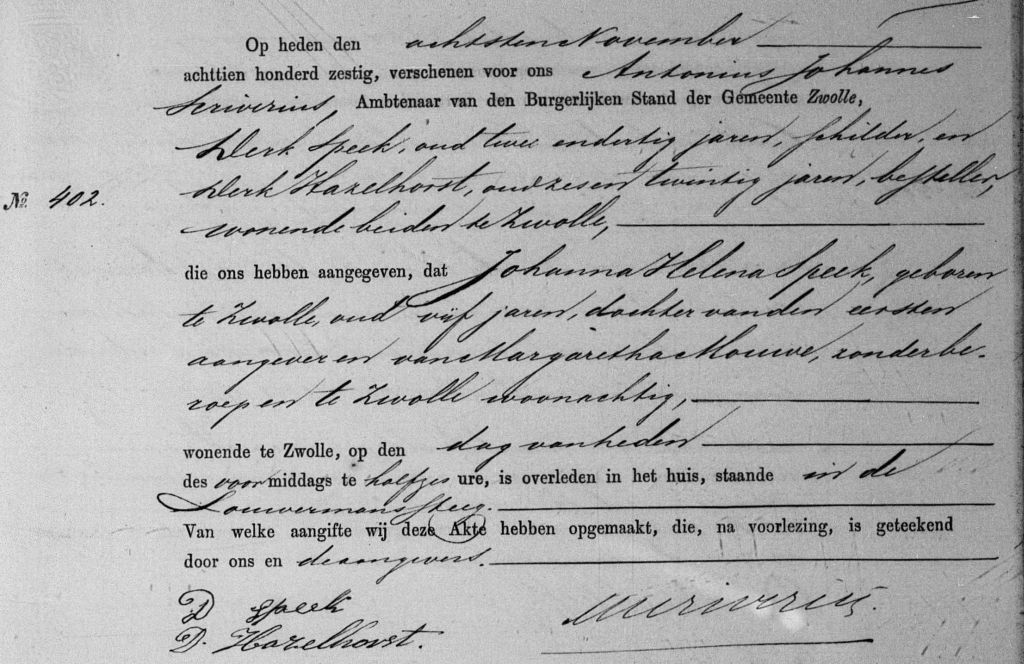 Op heden den achtsten November
achttien honderd zestig, verschenen voor ons Antonius Johannes
Scriverius, Ambtenaar van den Burgerlijken Stand der Gemeente Zwolle,
Derk Speek, oud twee endertig jaren, schilder, en
№ 402. Derk Hazelhorst, oud zes en twintig jaren, besteller,
wonende beiden te Zwolle,
die ons hebben aangegeven, dat Johanna Helena Speek, geboren
te Zwolle, oud vijf jaren, dochter van den eersten
aangever en van Margaretha Mouwe, zonder be-
roep en te Zwolle woonachtig,
wonende te Zwolle, op den dag van heden
des voormiddags te halfzes ure, is overleden in het huis, staande in de
Louwermanssteeg.
Van welke aangifte wij deze Akte hebben opgemaakt, die, na voorlezing, is geteekend
door ons en de aangevers.
D Speek
D. Hazelhorst. Scriverius.